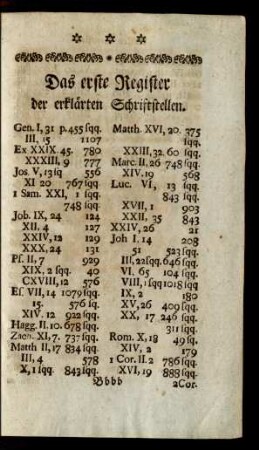 Das erste Register
der erklärten Schriftstellen.
Gen. I, 31 p. 455 sqq.
III, 15 1107
Ex XXIX 45. 780
XXXIII, 9 777
Jos. V, 13sq 556
XI 20 767 sqq
1 Sam. XXI, 1 sqq
748 sqq
Job. IX, 24 124
XII. 4 127
XXIV, 12 129
XXX, 24 131
Ps. II, 7 929
XIX, 2 sqq. 40
CXVIII, 12 576
Es. VII, 14 1079 sqq
15. 576 sq.
XIV. 12 922 sqq.
Hagg. II. 10. 678 sqq.
Zach. XI, 7. 737 sqq.
Matth II, 17 834 sqq
III, 4 578
X, 1 sqq 843 sqq
Matth. XVI, 20. 375
sqq.
XXIII, 32. 60 sqq.
Marc. II. 26 748 sqq.
XIV. 19 568
Luc. VI, 13 sqq.
843 sqq.
XVII, 1 903
XXII, 35 843
XXIV, 26 21
Joh I. 14 208
51 523 sqq.
III, 22sqq. 646 sqq.
VI. 65 104 sqq.
VIII, 1 sqq 1018 sqq
IX, 2 180
XV, 26 409 sqq.
XX, 17 246 sqq.
311 sqq.
Rom. X, 18 49 sq.
XIV, 2 179
1 Cor. II. 2 786 sqq.
XVI, 19 888 sqq.
Bbbb 2 Cor.